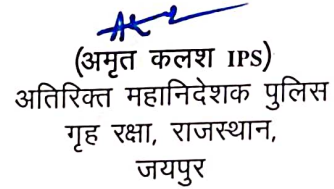 (अमृत कलश IPS)
अतिरिक्त महानिदेशक पुलिस
गृह रक्षा, राजस्थान,
जयपुर